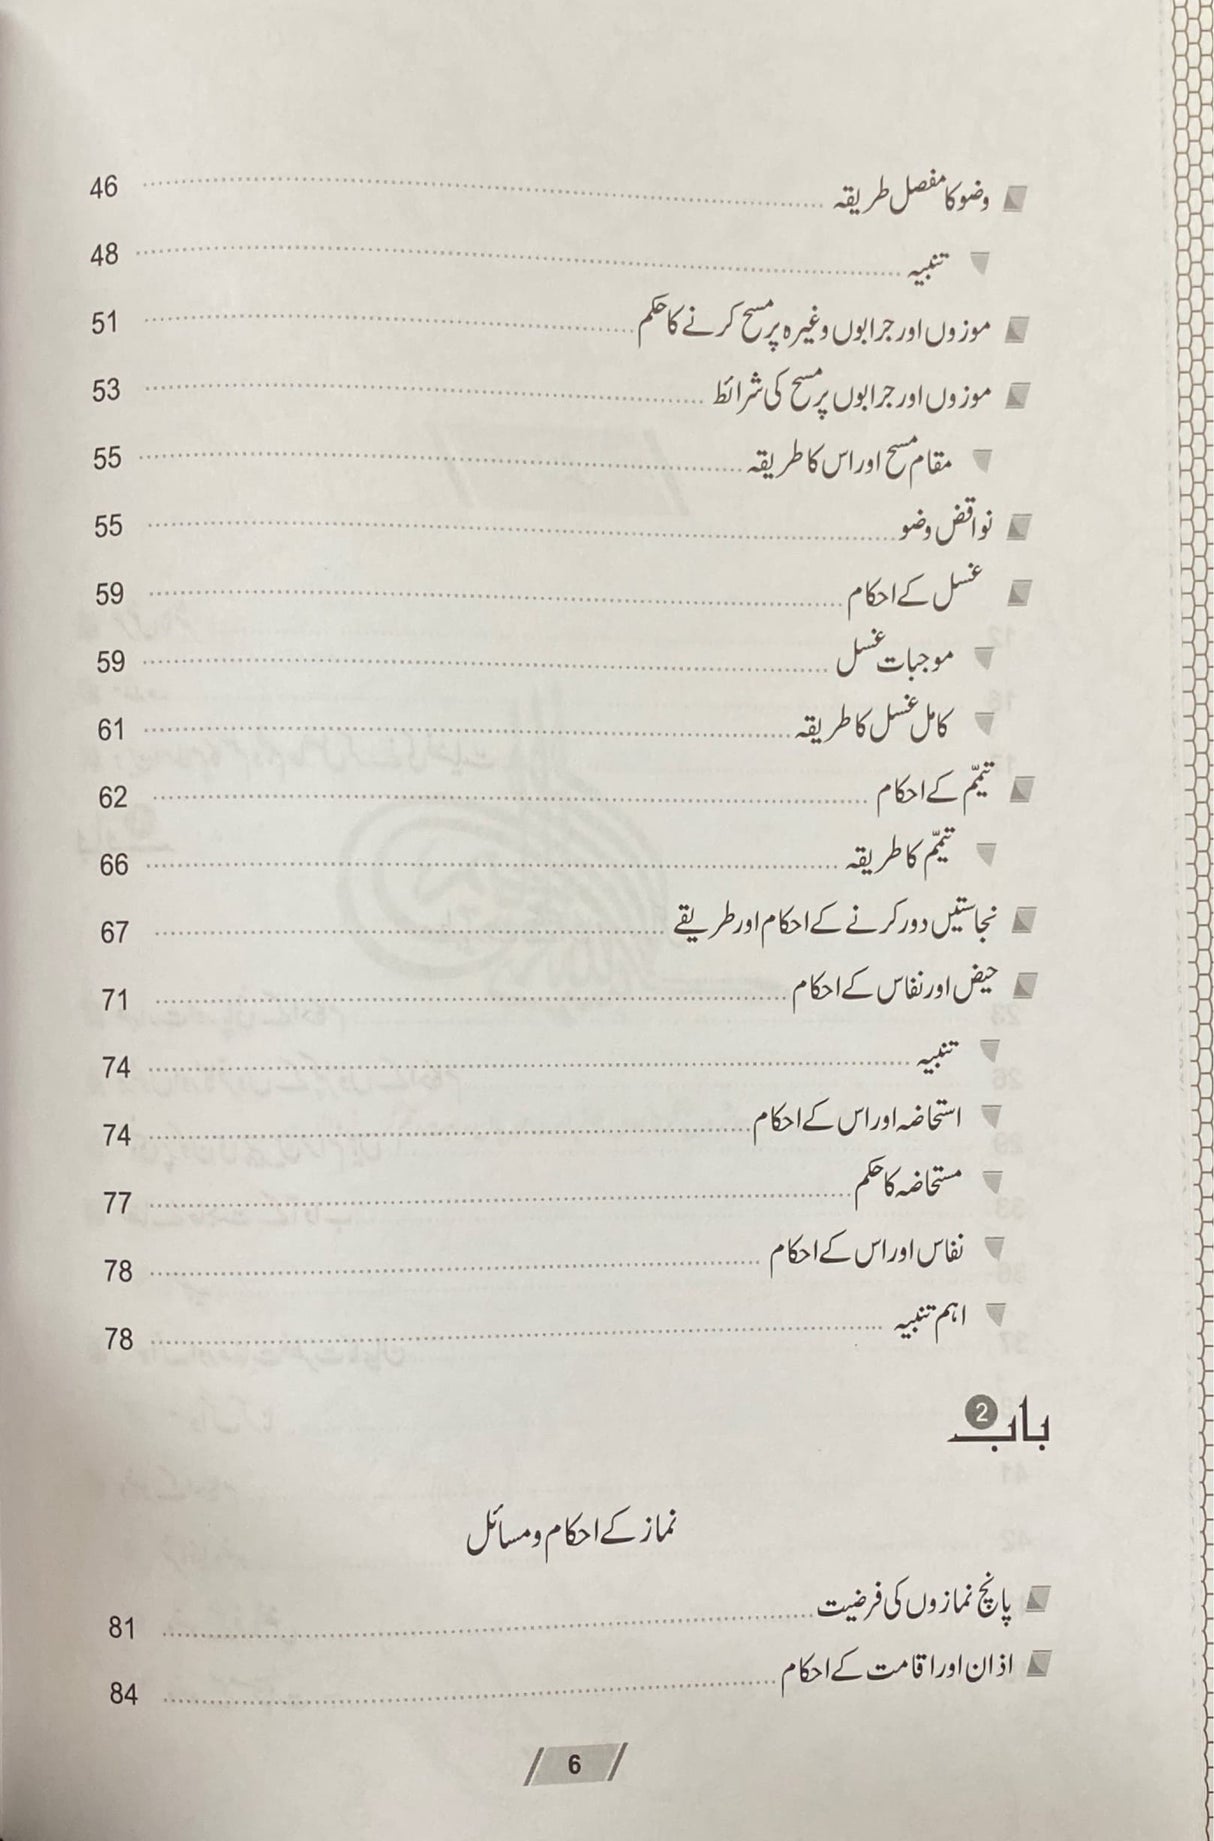 وضو کا مفصل طریقہ 46
تنبیہ 48
موزوں اور جرابوں وغیرہ پر مسح کرنے کا حکم 51
موزوں اور جرابوں پر مسح کی شرائط 53
مقام مسح اور اس کا طریقہ 55
نواقض وضو 55
غسل کے احکام 59
موجبات غسل 59
کامل غسل کا طریقہ 61
تیمّم کے احکام 62
تیمّم کا طریقہ 66
نجاستیں دور کرنے کے احکام اور طریقے 67
حیض اور نفاس کے احکام 71
تنبیہ 74
استحاضہ اور اس کے احکام 74
مستحاضہ کا حکم 77
نفاس اور اس کے احکام 78
اہم تنبیہ 78
باب 2
نماز کے احکام و مسائل
پانچ نمازوں کی فرضیت 81
اذان اور اقامت کے احکام 84
6